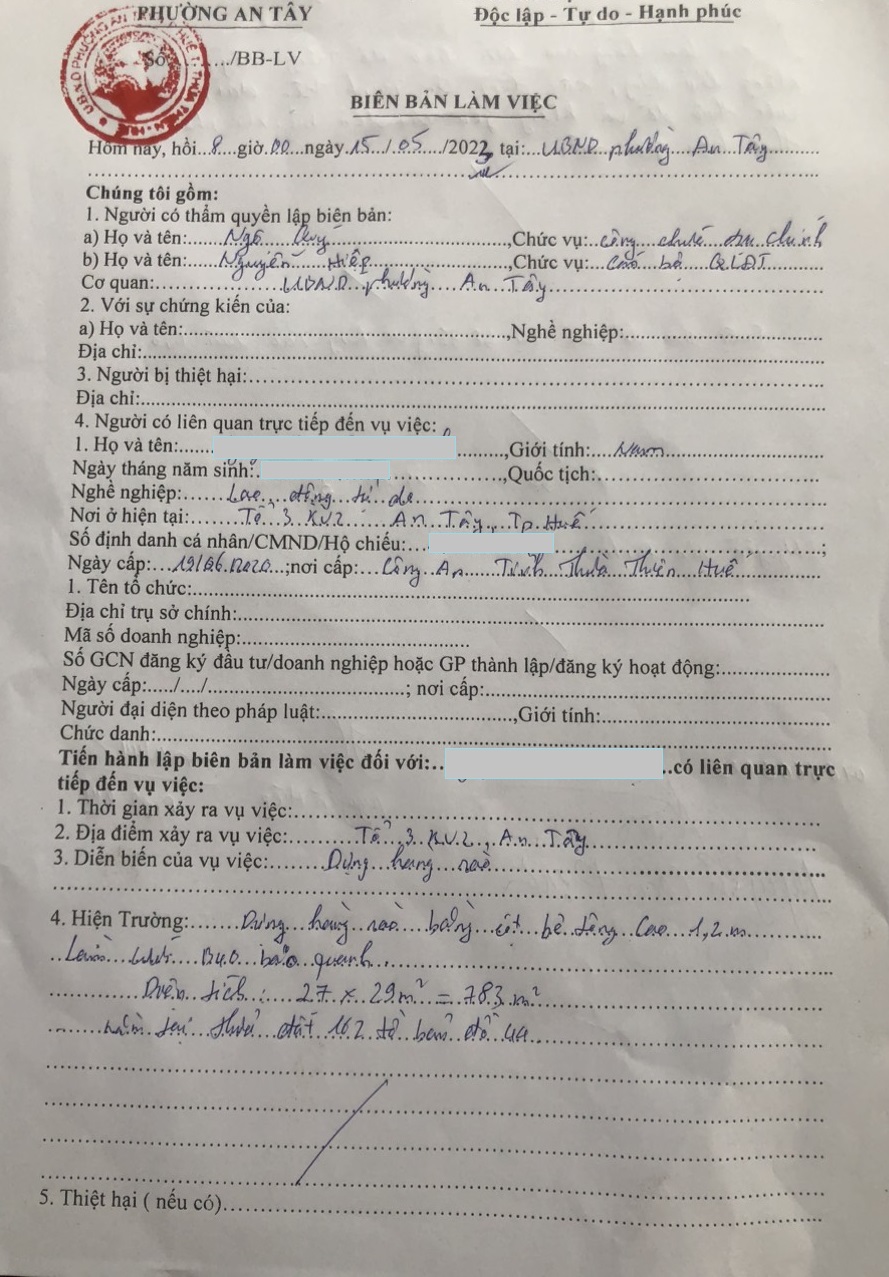 PHƯỜNG AN TÂY
Độc lập - Tự do - Hạnh phúc
Số ..../BB-LV
BIÊN BẢN LÀM VIỆC
Hôm nay, hồi...8....giờ.00...ngày.15.../.05..../2023, tại:...UBND...phường....An...Tây..........
Chúng tôi gồm:
1. Người có thẩm quyền lập biên bản:
a) Họ và tên:......Ngô....Quý...............................,Chức vụ:..công...chức...địa chính
b) Họ và tên:......Nguyễn....Hiệp.......................,Chức vụ:...Cán...bộ...QLĐT......
Cơ quan:......................UBND...phường.....An...Tây..............................
2. Với sự chứng kiến của:
a) Họ và tên:......................................................,Nghề nghiệp:..............................
Địa chỉ:..............................................................................................................
3. Người bị thiệt hại:..........................................................................................
Địa chỉ:..............................................................................................................
4. Người có liên quan trực tiếp đến vụ việc:
1. Họ và tên:...... .........,Giới tính:....Nam..........................
Ngày tháng năm sinh:. ......................,Quốc tịch:..............................
Nghề nghiệp:.......Lao...động...tự do..........................................................
Nơi ở hiện tại:........Tổ..3..KV2.......An...Tây...Tp.Huế...............................
Số định danh cá nhân/CMND/Hộ chiếu:... ..........................................;
Ngày cấp:...19/06.2020...;nơi cấp:...Công..An......Tỉnh...Thừa...Thiên...Huế............
1. Tên tổ chức:....................................................................................
Địa chỉ trụ sở chính:..............................................................................................
Mã số doanh nghiệp:.......................................
Số GCN đăng ký đầu tư/doanh nghiệp hoặc GP thành lập/đăng ký hoạt động:...................
Ngày cấp:...../..../..................................; nơi cấp:..........................................................
Người đại diện theo pháp luật:..................................,Giới tính:.......................................
Chức danh:.........................................................................................................
Tiến hành lập biên bản làm việc đối với:.. ..có liên quan trực
tiếp đến vụ việc:
1. Thời gian xảy ra vụ việc:......................................................................................
2. Địa điểm xảy ra vụ việc:...........Tổ...3..KV2..,An...Tây..........................................
3. Diễn biến của vụ việc:.........Dựng...hàng...rào..........................................................
4. Hiện Trường:.........Dựng...hàng...rào...bằng...cột...bê tông...Cao...1,2.m............
......lưới...B40...bao...quanh..............................................................................
...............Diện...tích...:...27...x...29m² = 783.m²..............................................
.........nằm...tại...thửa...đất..162..tờ...bản...đồ..44.................................................
5. Thiệt hại ( nếu có)..............................................................................................